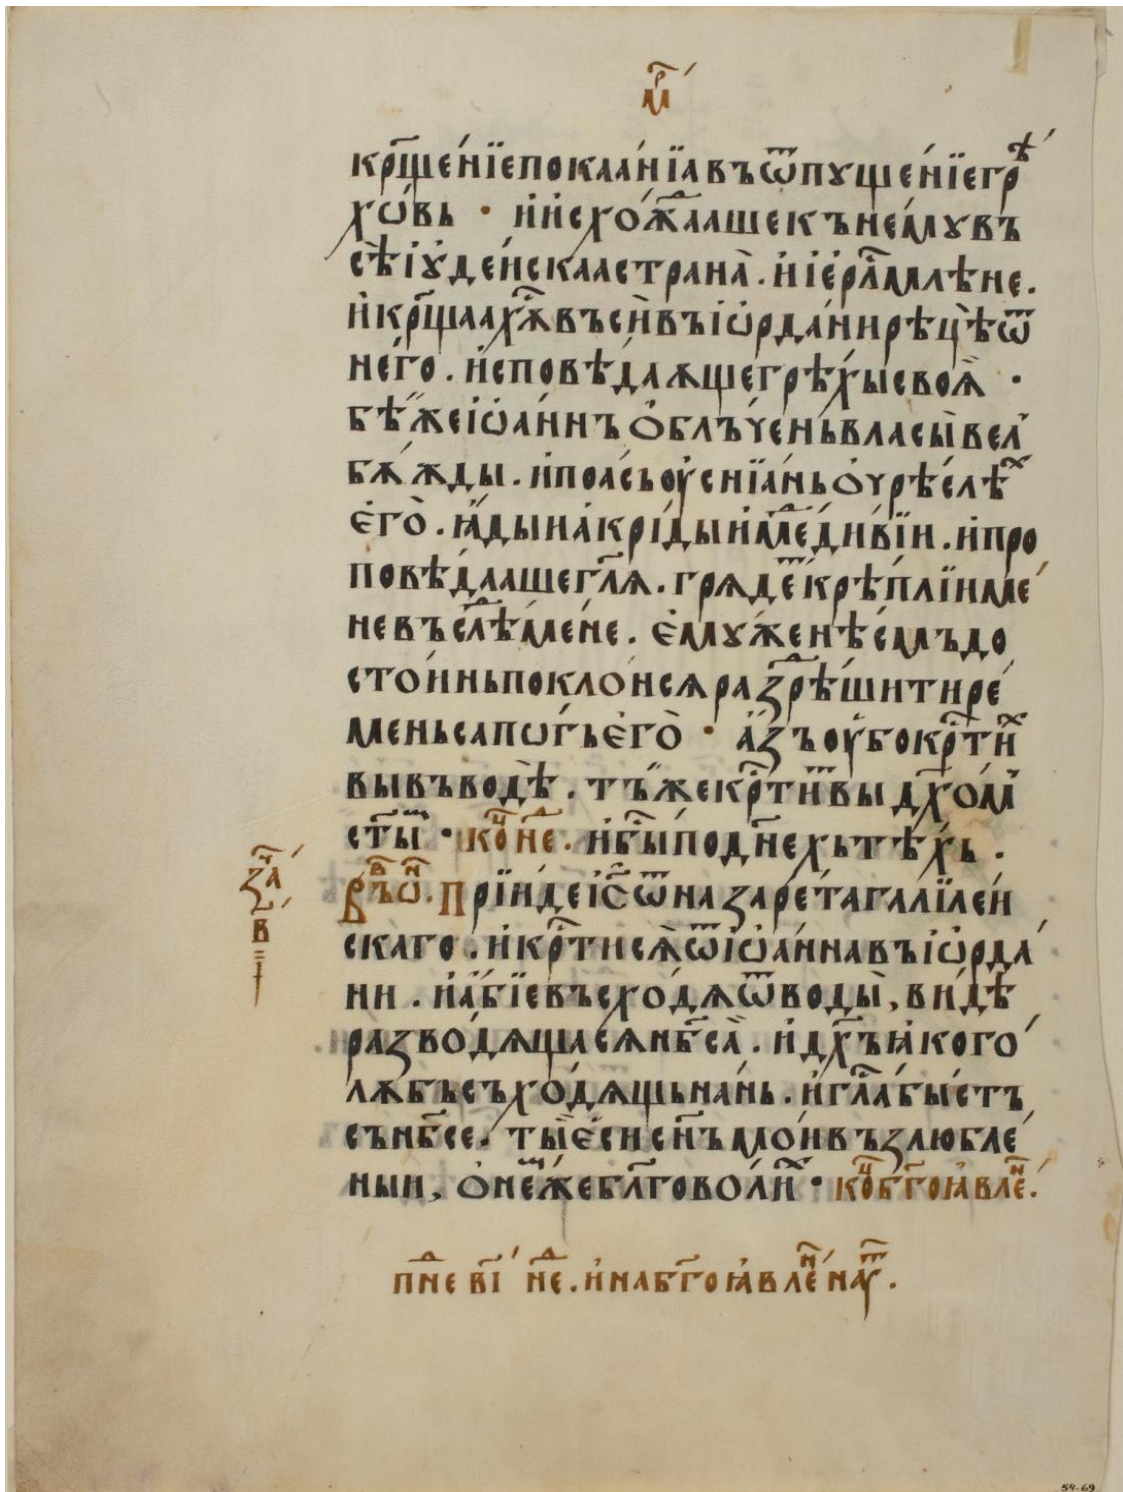 мр҃
кр҃щенїе покаанїа въ ѿпущенїе грѣ
хѡвь · и исхождааше къ нему въ
сѣ іудейскаа страна . и іер҃лмлѣне .
и кр҃щаахѫ въси въ іѡрдани рѣцѣ ѿ
него . исповѣдаѫще грѣхы своѫ ·
бѣ же іѡаннъ ѡблъчень власы вел
бѫжды . и поась оуснїань ѡ чрѣслѣх
его . ꙗды накриды и медь дивїи . и про
повѣдааше гл҃ѧ . грѧдет крѣплїи ме
не въслѣд мене . емуже нѣсмъ до
стоинь поклонсѧ раздрѣшити ре
мень сапѡгь его · азъ оубо кр҃тих
вы въ водѣ . тъ же кр҃тит вы дх҃ом
ст҃ым · кѡ҃ц не . и б҃ы под нехь тѣхь .
въ ѡн . Прїиде іс҃ ѿ назарета галїлеи
скаго . и кр҃тисѧ ѿ іѡанна въ іѡрда
ни . и абїе въсходѧ ѿ воды , видѣ
разводѧщасѧ нб҃са . и дх҃ъ ꙗко го
лѫбь съходѧщь нань . и гл҃а бысть
съ нб҃се . ты еси сн҃ъ мои възлюбле
ныи , ѡ немже бл҃говолих · кѡ҃ц бг҃оꙗвлен .
за҃ч
в҃
пн҃е в҃і не҃д . и на бг҃оꙗвлен на ут҃р .
54-69